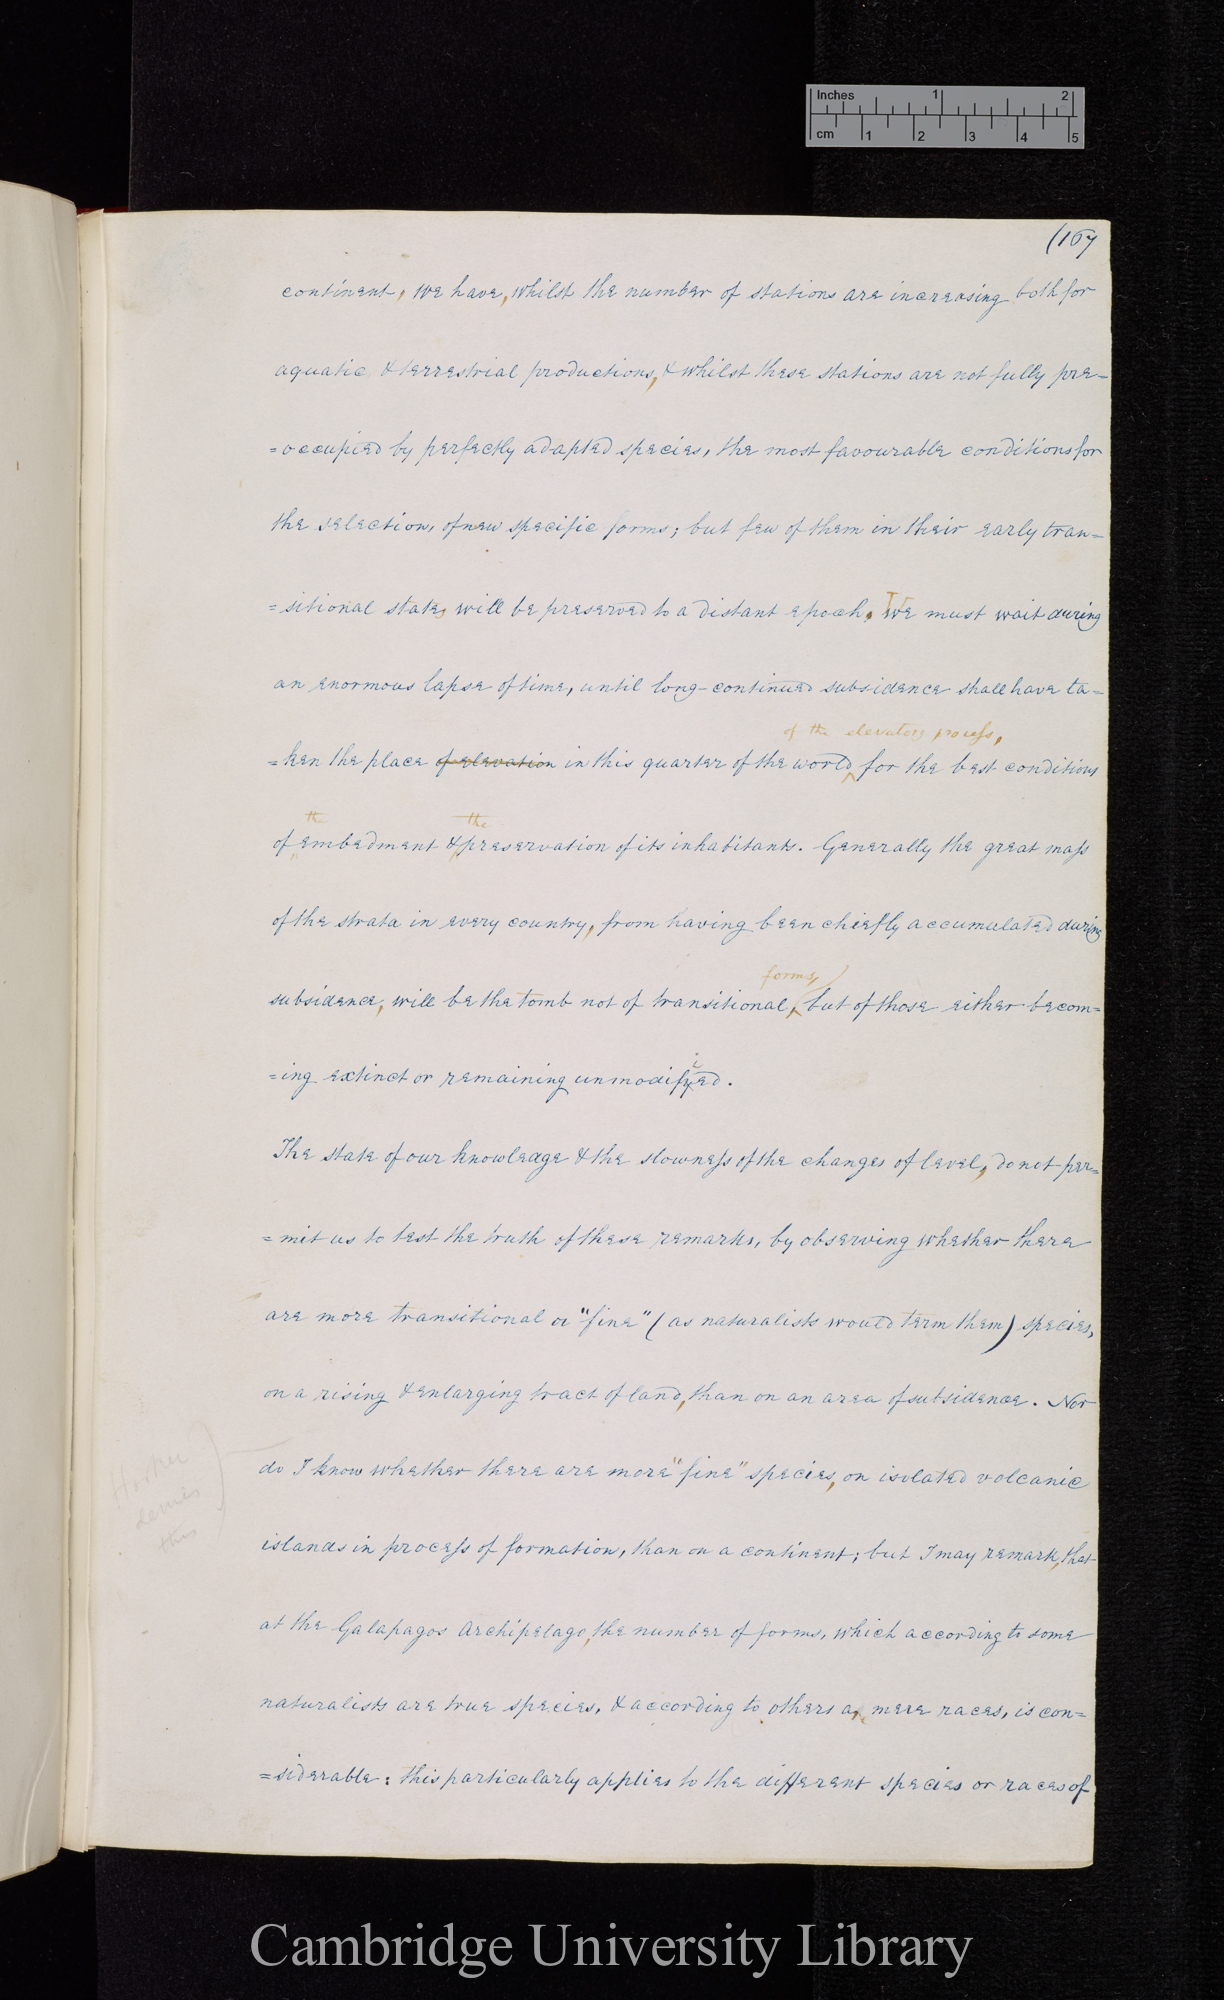 Inches 1 2
cm 1 2 3 4 5
(167
continent, we have, whilst the number of stations are increasing both for
aquatic & terrestrial productions, & whilst these stations are not fully pre-
=occupied by perfectly adapted species, the most favourable conditions for
the selection, of new specific forms; but few of them in their early tran=
=sitional states will be preserved to a distant epoch. We must wait during
an enormous lapse of time, until long-continued subsidence shall have ta-
of the elevatory process,
=ken the place of elevation in this quarter of the world for the best conditions
the the
of embedment & preservation of its inhabitants. Generally the great mass
of the strata in every country, from having been chiefly accumulated during
forms,
subsidence, will be the tomb not of transitional, but of those either becom=
i
=ing extinct or remaining unmodifyed.
The state of our knowledge & the slowness of the changes of level, do not per=
=mit us to test the truth of these remarks, by observing whether there
are more transitional or "fine" (as naturalists would term them) species,
on a rising & enlarging tract of land, than on an area of subsidence. Nor
do I know whether there are more "fine" species, on isolated volcanic
Hooker
denies
this
islands in process of formation, than on a continent; but I may remark, that
at the Galapagos Archipelago, the number of forms, which according to some
naturalists are true species, & according to others are mere races, is con=
=siderable: this particularly applies to the different species or races of
Cambridge University Library